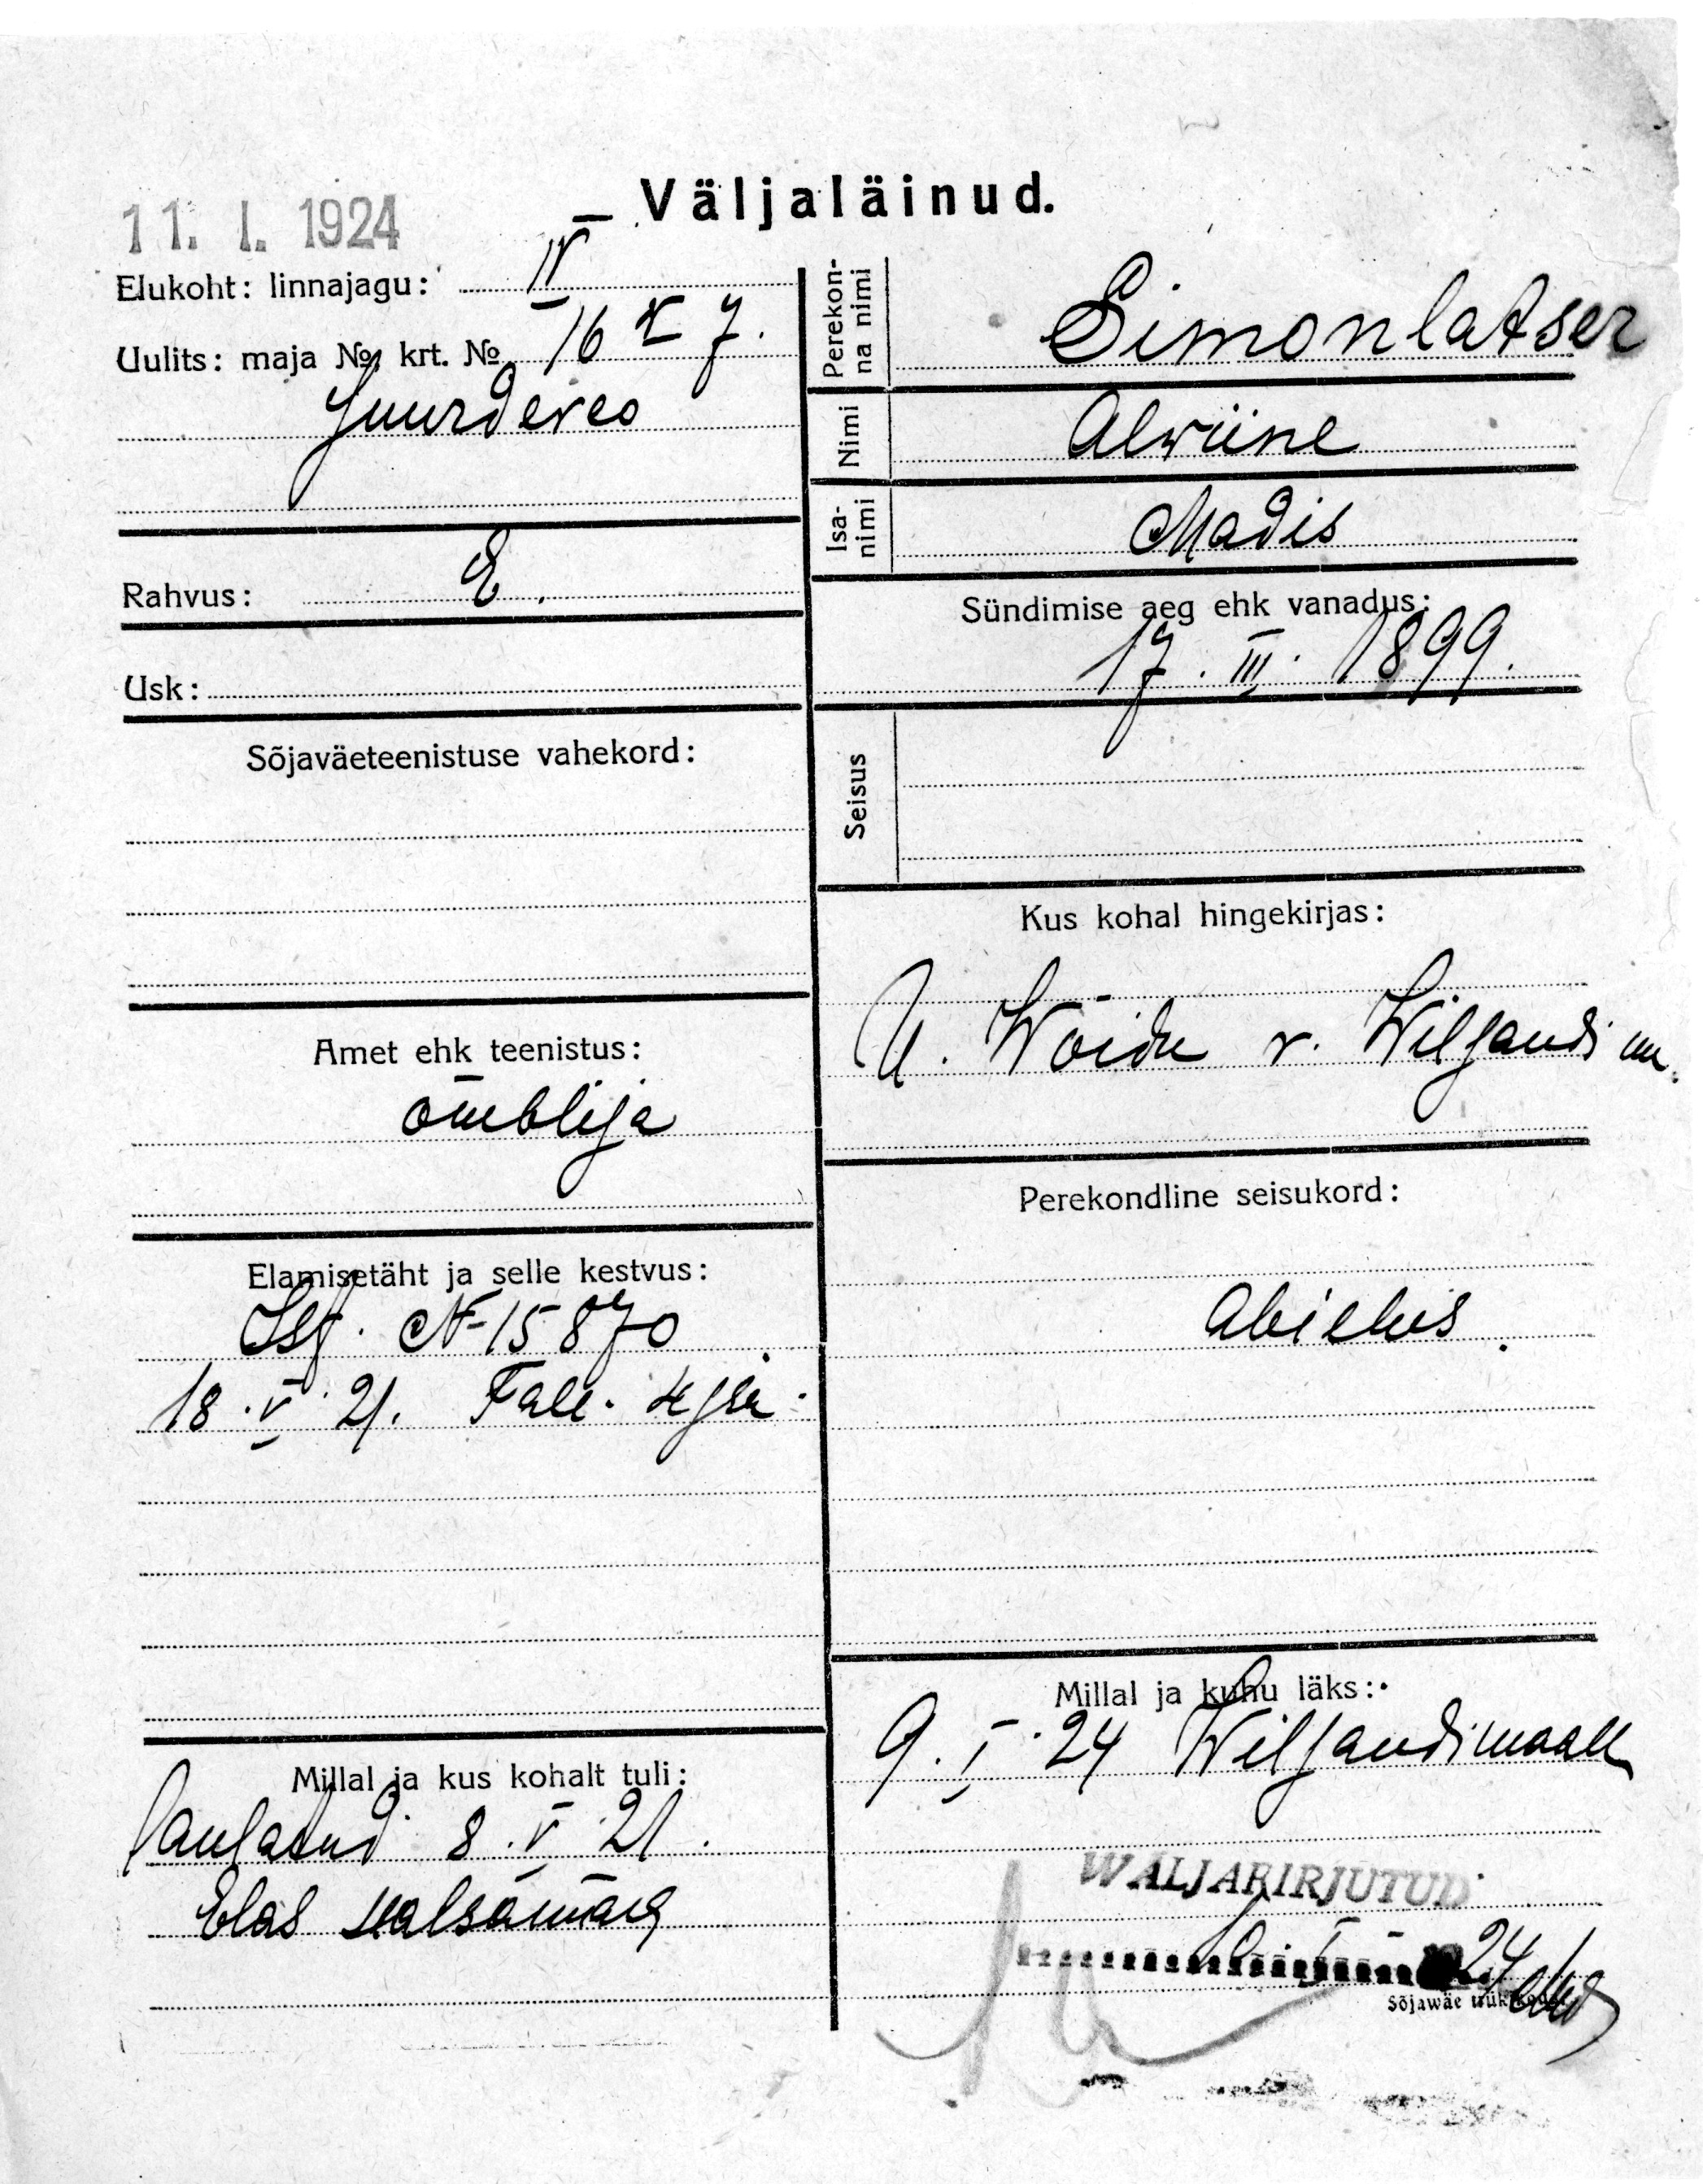 11. I. 1924
Väljaläinud.
Elukoht: linnajagu: IV
Uulits: maja №, krt. № 16 7.
Juurdeveo
Rahvus: E.
Usk:
Sõjaväeteenistuse vahekord:
Amet ehk teenistus:
õmblija
Elamisetäht ja selle kestvus:
Isf. № 15870
18. V. 21. Tall.
Millal ja kus kohalt tuli:
8. V. 21.
Elas
Perekonna nimi Simonlatser
Nimi Alwiine
Isanimi Madis
Sündimise aeg ehk vanadus:
17. III. 1899.
Seisus
Kus kohal hingekirjas:
U. Wõidu v. Wiljandi m.
Perekondline seisukord:
Abielus.
Millal ja kuhu läks:
9. I. 24 Wiljandimaale
WÄLJAKIRJUTUD
24
Sõjawäe